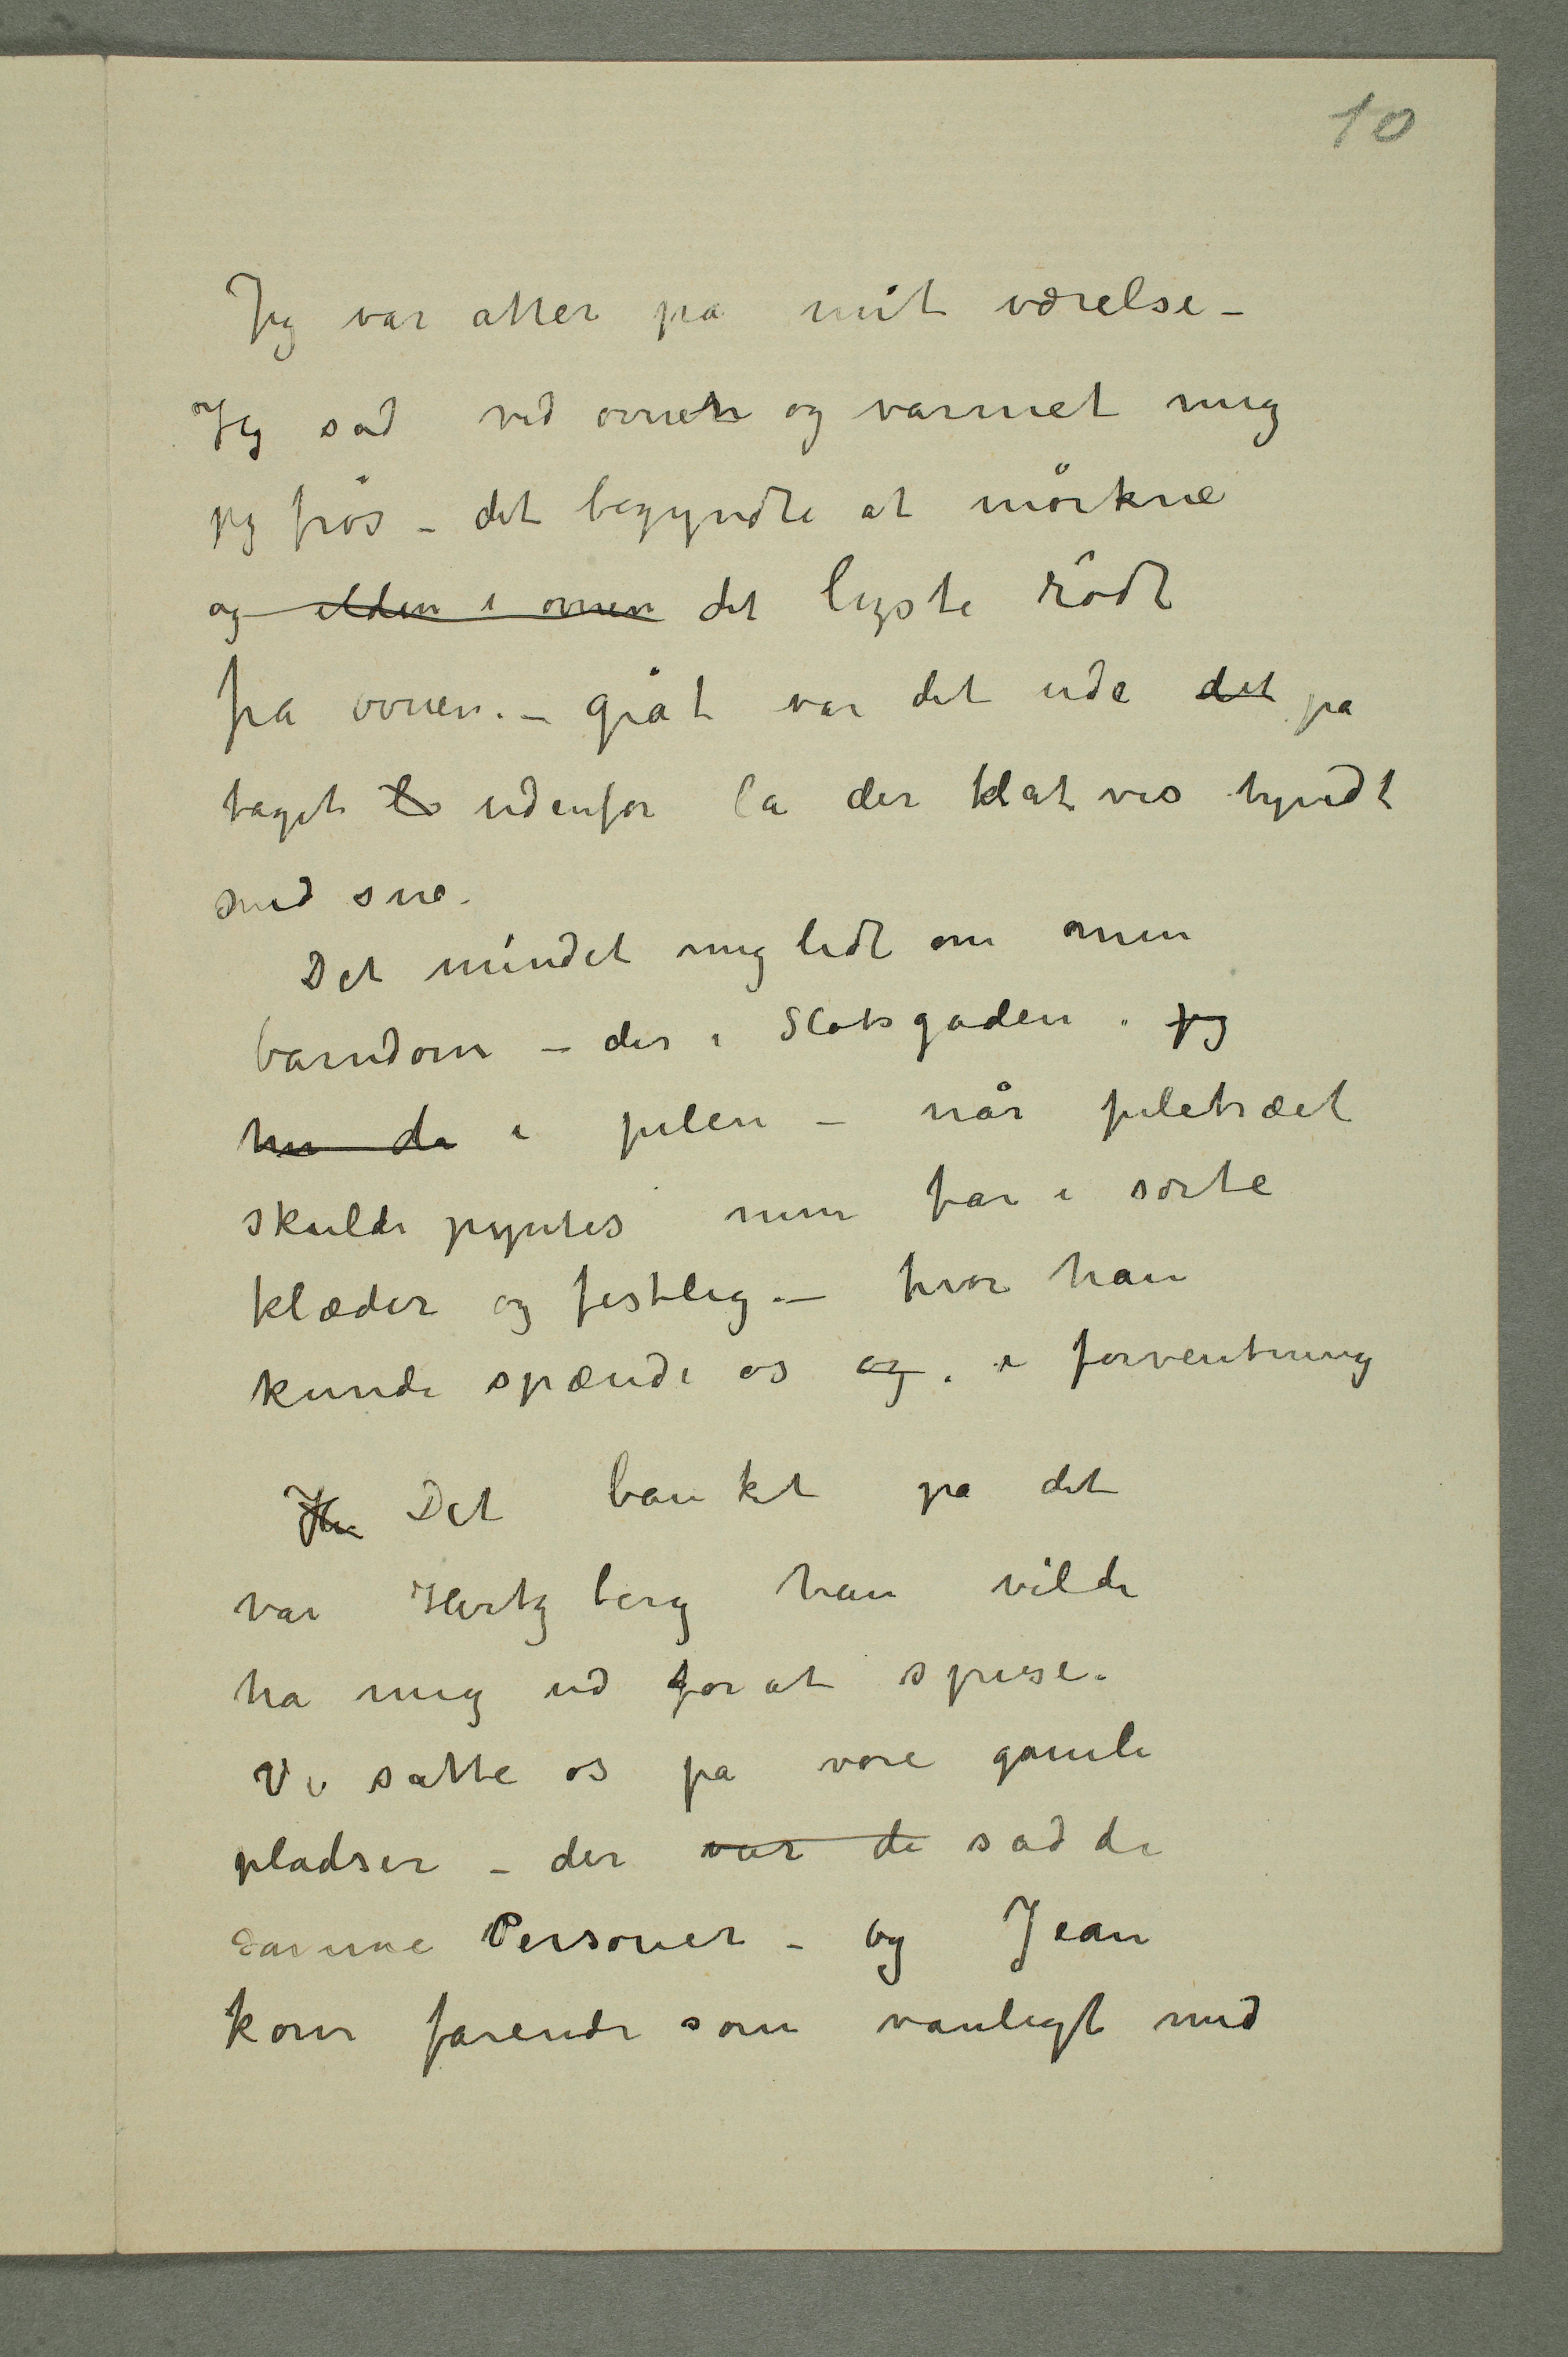 10
Jeg var atter på mit værelse –
Jeg sad ved ovnen og varmet mig
jeg frös – det begyndte at mörkne
og ilden i ovnen det lyste rödt
fra ovnen. – gråt var det ude det på
taget l udenfor lå der klat vis tyndt
med sne.
Det mindet mig lidt om min
barndom – der i Slotsgaden . jeg
hu da i julen – når juletræet
skulde pyntes min far i sorte
klæder og festlig. – hvor han
kunde spænde os og . i forventning
Det banket på det
var Hertzberg han vilde
ha mig ud for at spise.
Vi satte os på vore gamle
pladser – der var de sad de
samme Personer – og Jean
kom farende som vanligt med